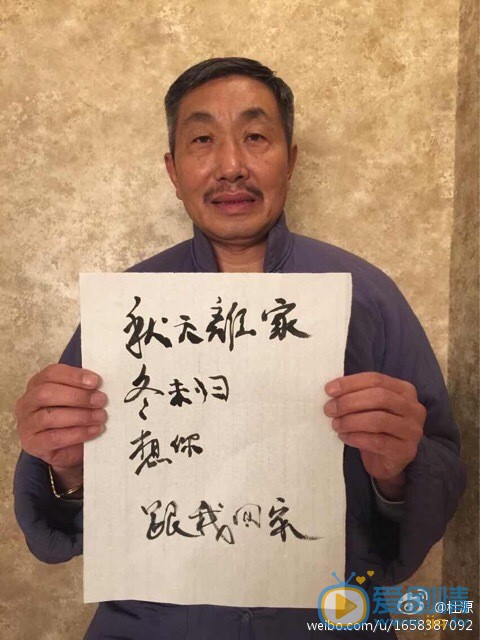 秋天離家
冬未归
想你
跟我回家
爱剧情
@杜源
weibo.com/u/1658387092